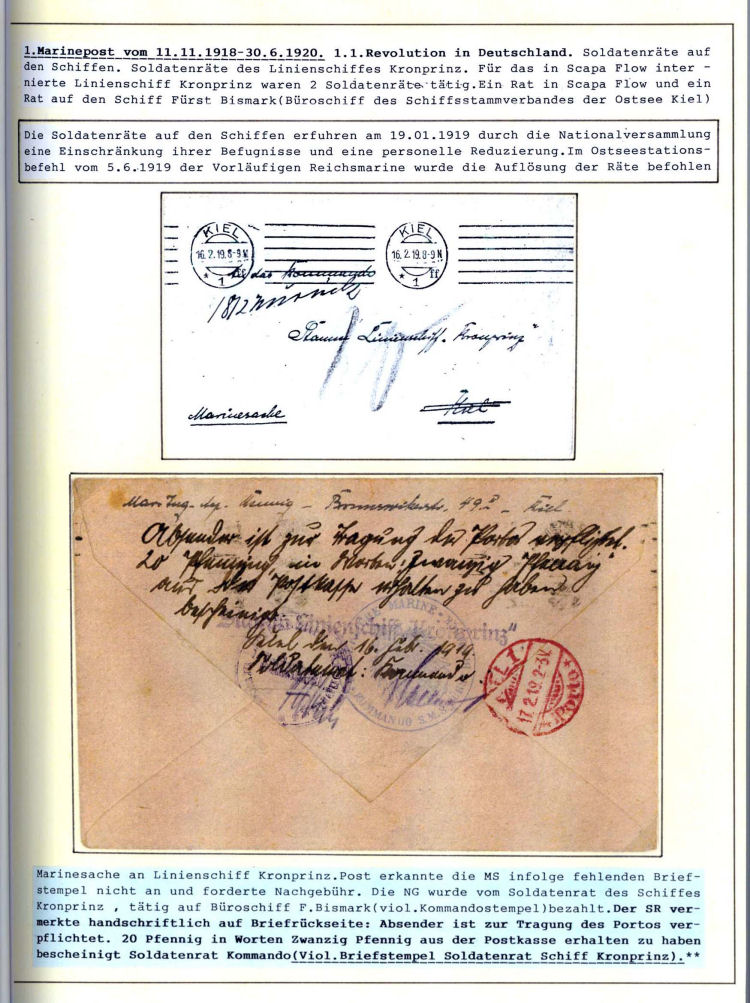 1.Marinepost vom 11.11.1918-30.6.1920. 1.1.Revolution in Deutschland. Soldatenräte auf
den Schiffen. Soldatenräte des Linienschiffes Kronprinz. Für das in Scapa Flow inter -
nierte Linienschiff Kronprinz waren 2 Soldatenräte tätig.Ein Rat in Scapa Flow und ein
Rat auf den Schiff Fürst Bismark(Büroschiff des Schiffsstammverbandes der Ostsee Kiel)
Die Soldatenräte auf den Schiffen erfuhren am 19.01.1919 durch die Nationalversammlung
eine Einschränkung ihrer Befugnisse und eine personelle Reduzierung.Im Ostseestations-
befehl vom 5.6.1919 der Vorläufigen Reichsmarine wurde die Auflösung der Räte befohlen
KIEL KIEL
16.2.19.8-9N 16.2.19.8-9N
* 1 * 1
An das Kommando
18/2 zurück
Stamm Linienschiff "Kronprinz"
Marinesache Kiel
Kiel
Absender ist zur Tragung des Portos verpflichtet.
20 Pfennig in Worten: Zwanzig Pfennig
aus der Postkasse erhalten zu haben
bescheinigt
Linienschiff "Kronprinz"
Kiel den 16. Febr. 1919.
Soldatenrat: Kommando
MARINE
KOMMANDO S.M.
17.2.19.2-3V.
Marinesache an Linienschiff Kronprinz.Post erkannte die MS infolge fehlenden Brief-
stempel nicht an und forderte Nachgebühr. Die NG wurde vom Soldatenrat des Schiffes
Kronprinz , tätig auf Büroschiff F.Bismark(viol.Kommandostempel)bezahlt.Der SR ver-
merkte handschriftlich auf Briefrückseite: Absender ist zur Tragung des Portos ver-
pflichtet. 20 Pfennig in Worten Zwanzig Pfennig aus der Postkasse erhalten zu haben
bescheinigt Soldatenrat Kommando(Viol.Briefstempel Soldatenrat Schiff Kronprinz).**